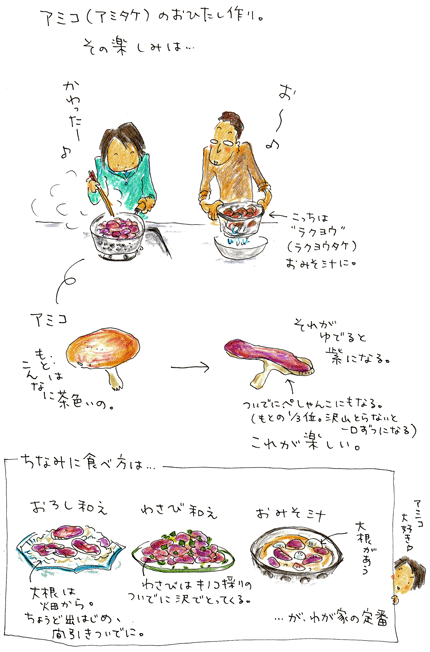 アミコ(アミタケ)のおひたし作り。
その楽しみは…
かわったー♪
お〜♪
こっちは
"ラクヨウ"
(ラクヨウタケ)
おみそ汁に。
アミコ
もとは
こんなに茶色いの。
それが
ゆでると
紫になる。
ついでにぺしゃんこにもなる。
(もとの1/3位。沢山とらないと
一口ずつになる)
これが楽しい。
ちなみに食べ方は…
おろし和え
大根は
畑から。
ちょうど出はじめ、
間引きついでに。
わさび和え
わさびはキノコ採りの
ついでに沢でとってくる。
おみそ汁
大根があう
…が、わが家の定番
アミコ
大好き♪